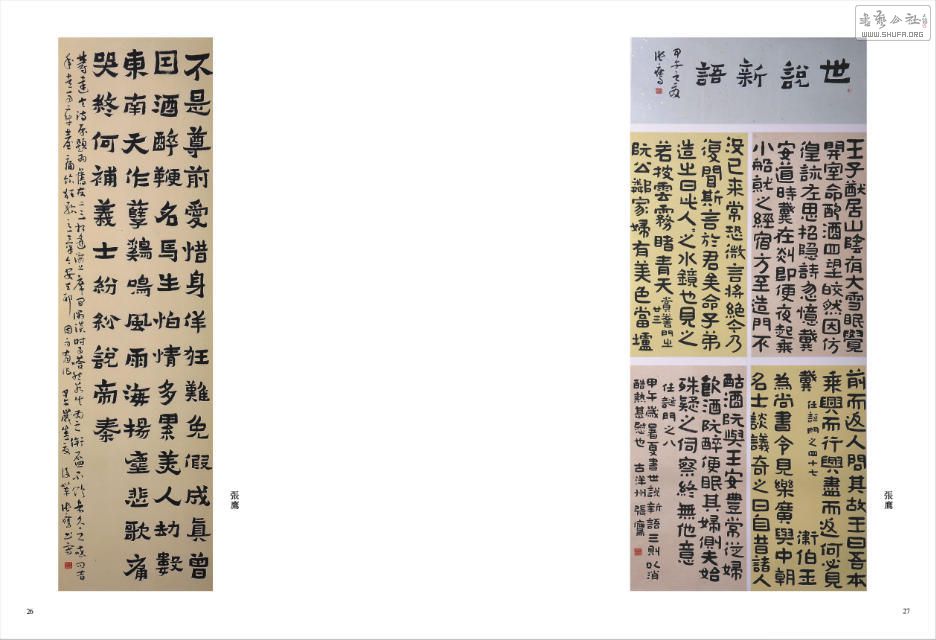 書藝公社
WWW.SHUFA.ORG
不是尊前愛惜身佯狂難免假成真曾
囙酒醉鞭名馬生怕情多累美人劫數
東南天作孽鷄鳴風雨海揚塵悲歌痛
哭終何補義士紛紛說帝秦
張鷹
26
世說新語
甲午之夏
張鷹
王子猷居山陰有大雪眠覺
開室命酌酒四望皎然因仿
偟詠左思招隐詩忽憶戴
安道時戴在剡即便夜起乘
小船就之經宿方至造門不
前而返人問其故王曰吾本
乘興而行興盡而返何必見
戴 任誕門之四十七 衛伯玉
為尚書令見樂廣與中朝
名士談議奇之曰自昔諸人
沒已来常恐微言将絕今乃
復聞斯言於君矣命子弟
造之曰此人之水鏡也見之
若披雲霧睹青天 賞譽門之廿三
阮公鄰家婦有美色當壚
酤酒阮與王安豐常從婦
飲酒阮醉便眠其婦側夫始
殊疑之伺察終無他意
任誕門之八
甲午歲暑夏書世說新語三則以消
酷熱甚慰也 古洋州張鷹
張鷹
27